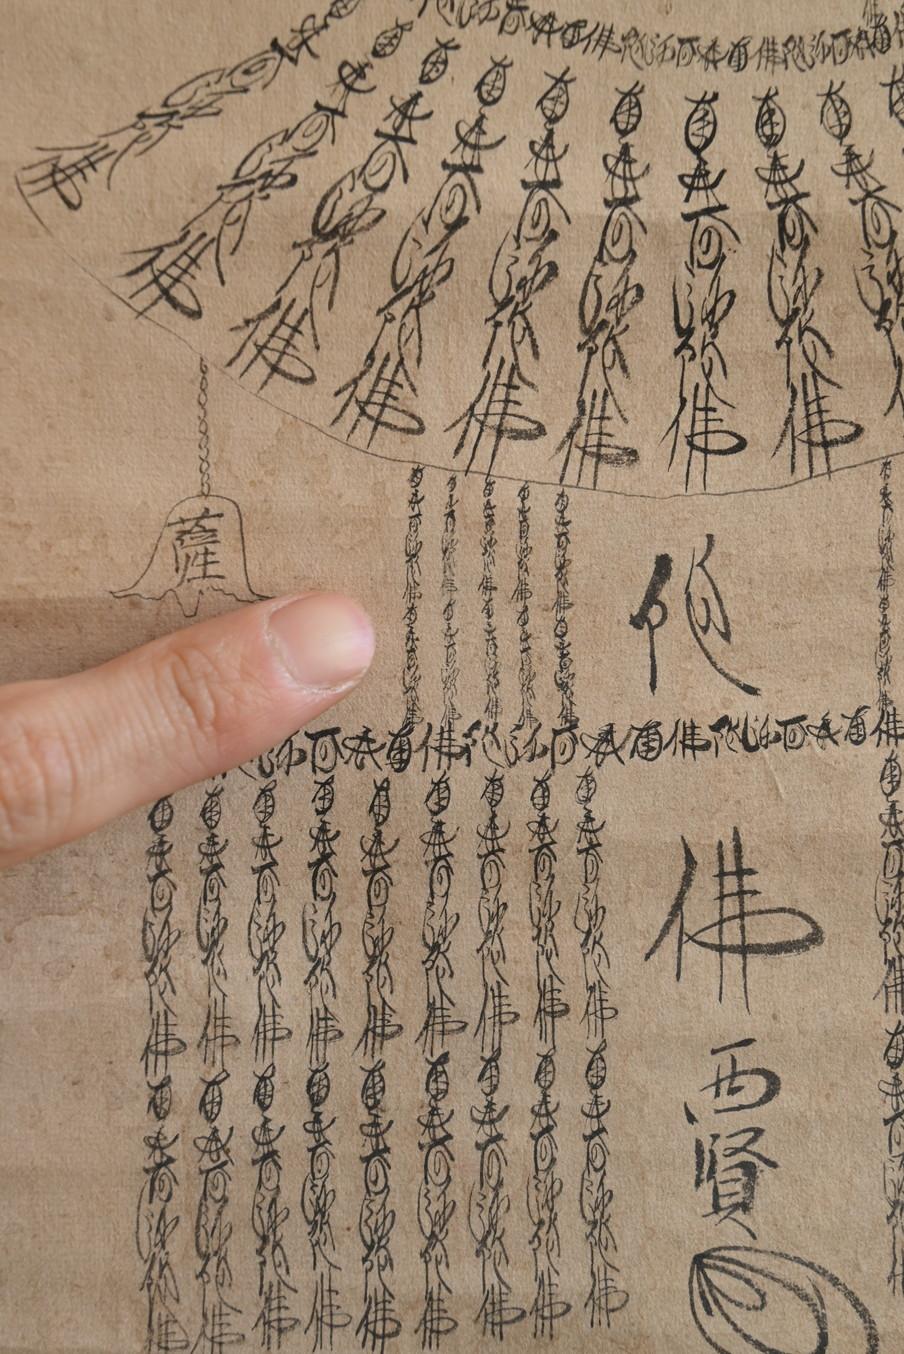 南無阿弥陀佛南無阿弥陀佛
南無阿弥陀
南無阿弥陀佛
南無阿弥陀佛
南無阿弥陀佛
南無阿弥陀佛
南無阿弥陀佛
南無阿弥陀佛
南無阿弥陀佛
南無阿弥陀佛
南無阿弥陀佛
薩
南無阿弥陀佛南無阿弥陀佛
南無阿弥陀佛南無阿弥陀佛
南無阿弥陀佛南無阿弥陀佛
南無阿弥陀佛南無阿弥陀佛
南無阿弥陀佛南無阿弥陀佛
佛南無阿弥陀佛南無阿弥陀佛南無阿弥
陀佛
西賢
南無阿弥陀佛南無阿弥陀佛
南無阿弥陀佛南無阿弥陀佛
南無阿弥陀佛南無阿弥陀佛
南無阿弥陀佛南無阿弥陀佛
南無阿弥陀佛南無阿弥陀佛
南無阿弥陀佛南無阿弥陀佛
南無阿弥陀佛南無阿弥陀佛
南無阿弥陀佛南無阿弥陀佛
南無阿弥陀佛南無阿弥陀佛